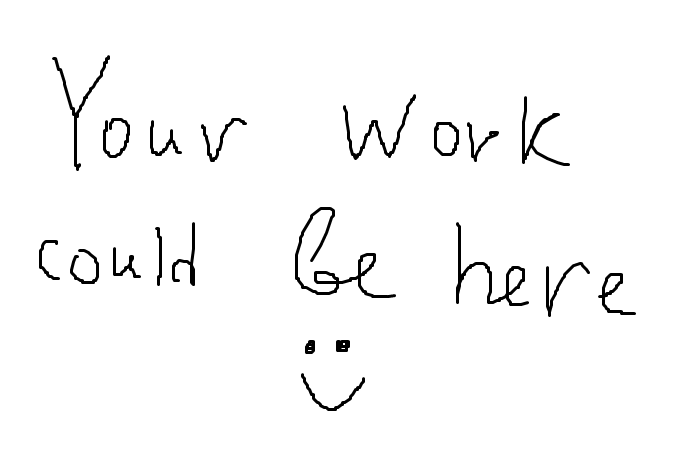 Your work
could be here